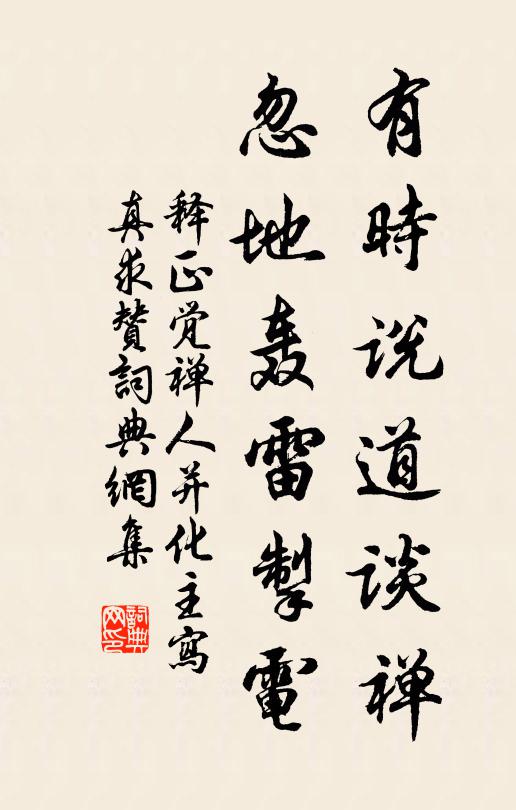 有時说道谈禅
忽地轰雷掣電
释正觉禅人并化主寫
真求賛詞典網集
詞典网印